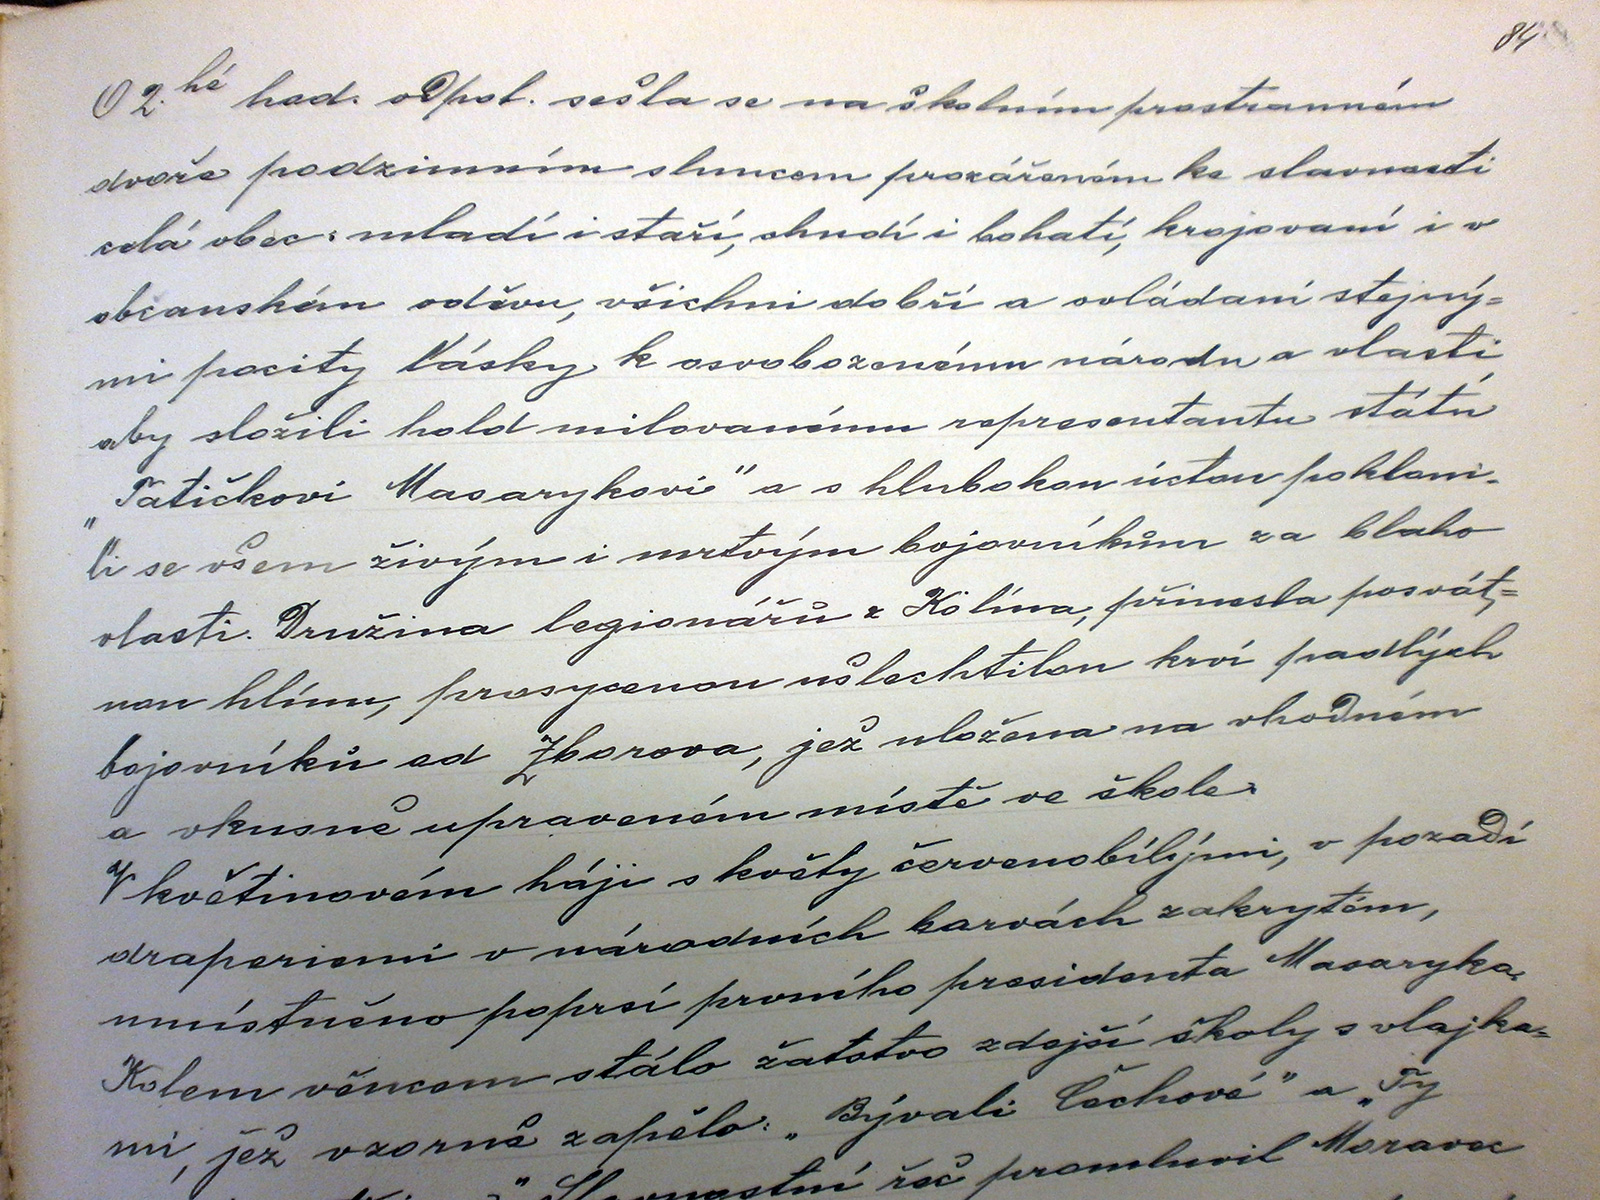 84
O 2.hé hod. odpol. sešla se na školním prostranném
dvoře podzimním sluncem prozářeném ke slavnosti
celá obec: mladí i staří, chudí i bohatí, krojovaní i v
občanském oděvu, všichni dobří a ovládaní stejný=
mi pocity lásky k osvobozenému národu a vlasti,
aby složili hold milovanému representantu státu
"Tatíčkovi Masarykovi" a s hlubokou úctou pokloni-
li se všem živým i mrtvým bojovníkům za blaho
vlasti. Družina legionářů z Kolína, přinesla posvát=
nou hlínu, prosycenou ušlechtilou krví padlých
bojovníků od Zborova, jež uložena na vhodném
a vkusně upraveném místě ve škole.
V květinovém háji s květy červenobílými, v pozadí
draperiemi v národních barvách zakrytém,
umístněno poprsí prvního presidenta Masaryka.
Kolem věncem stálo žatstvo zdejší školy s vlajka=
mi, jež vzorně zapělo: „Bývali Čechové" a „Ty
Slavnostní řeč promluvil Moravec